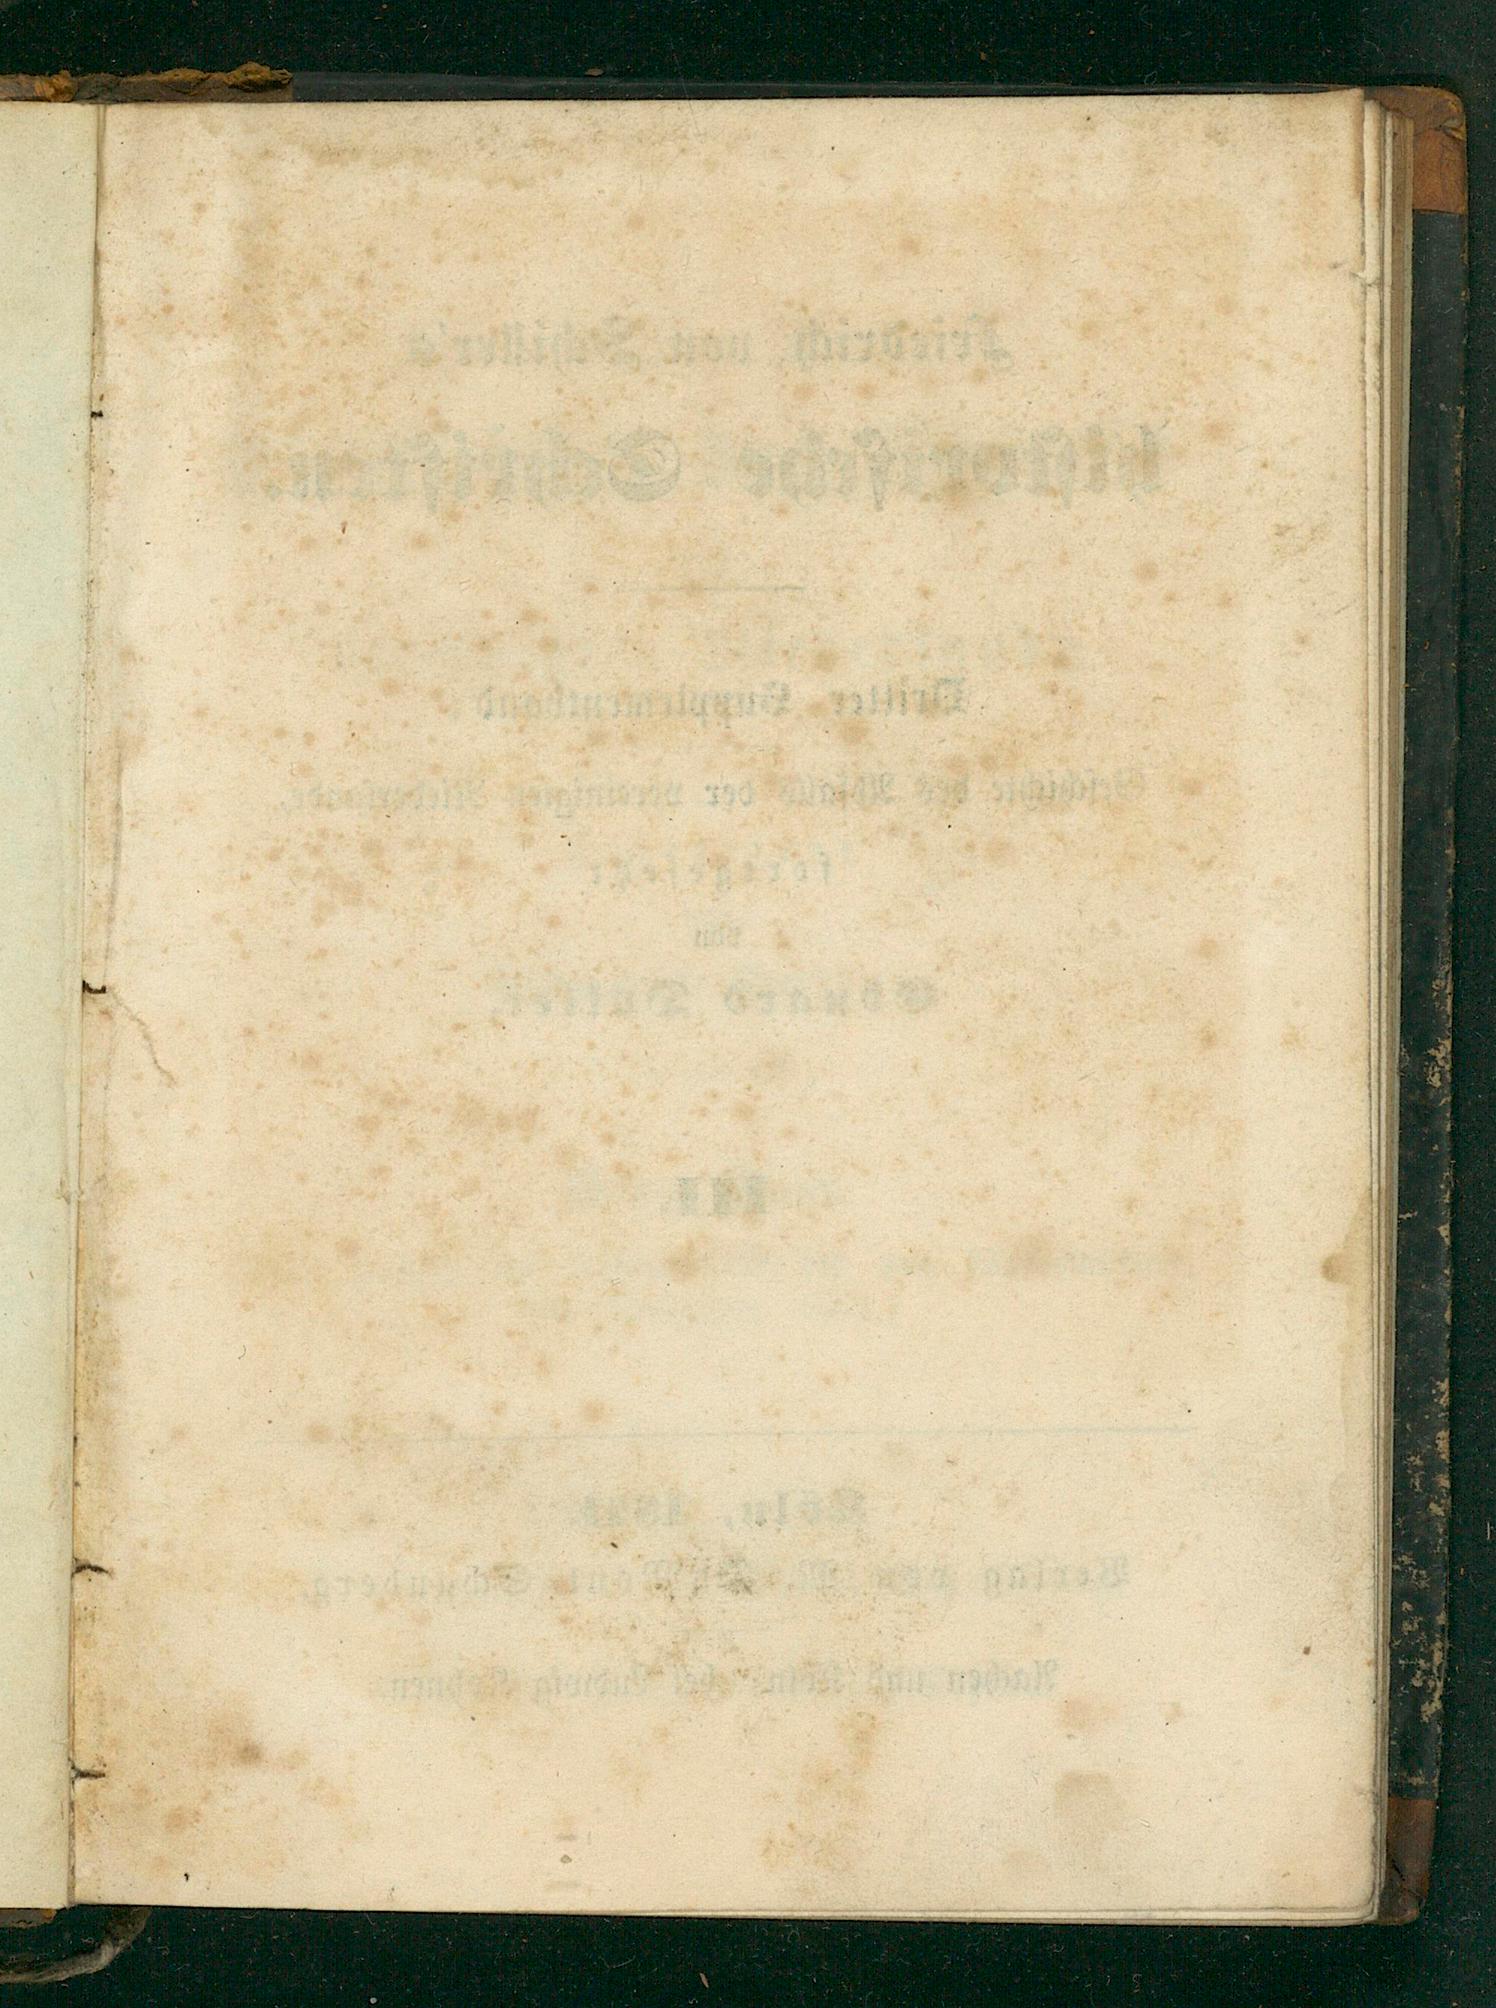 Friedrich von Schiller's
historische Schriften.
Dritter Supplementband:
Geschichte des Abfalls der vereinigten Niederlande,
fortgesetzt
von
Eduard Duller.
III.
Köln, 1841.
Verlag von M. DüMont-Schauberg.
Aachen und Köln bei Ludwig Kohnen.